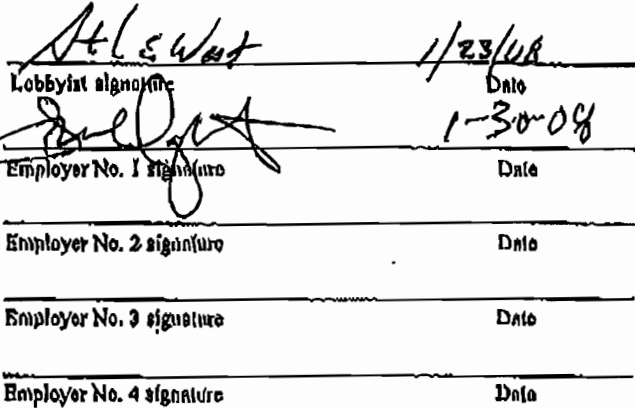 West 1/23/08
Lobbyist signature Date
1-30-08
Employer No. 1 signature Date
Employer No. 2 signature Date
Employer No. 3 signature Date
Employer No. 4 signature Date